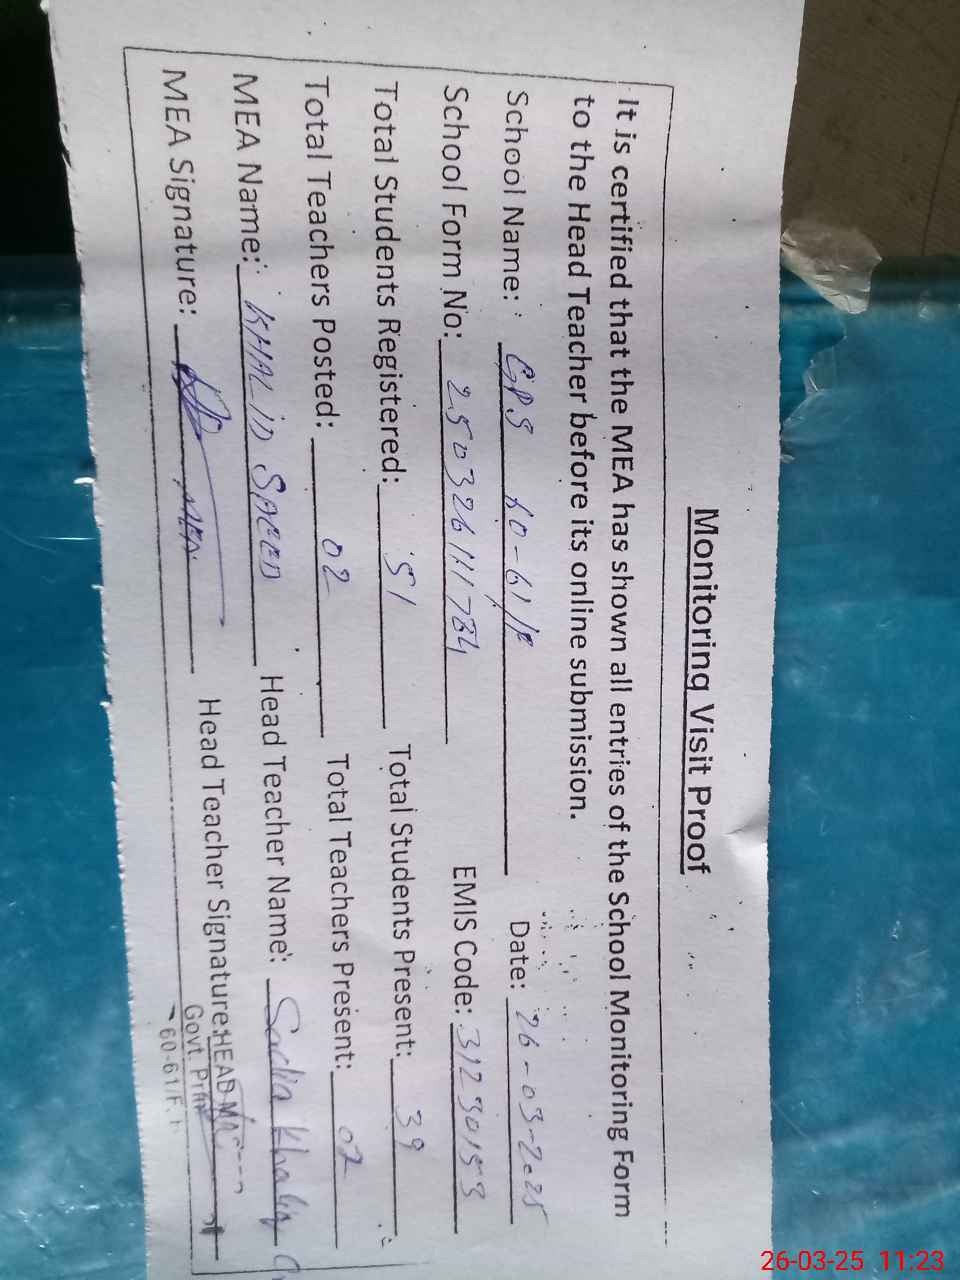 Monitoring Visit Proof
It is certified that the MEA has shown all entries of the School Monitoring Form
to the Head Teacher before its online submission.
School Name: GPS 60-61/F Date: 26-03-2025
School Form No: 25032611784 EMIS Code: 31230153
Total Students Registered: 51 Total Students Present: 39
Total Teachers Posted: 02 Total Teachers Present: 02
MEA Name: KHALID SAEED Head Teacher Name: Sadia Khaliq
MEA Signature: MEA Head Teacher Signature: HEAD
Govt.
60-61/F.
26-03-25 11:23